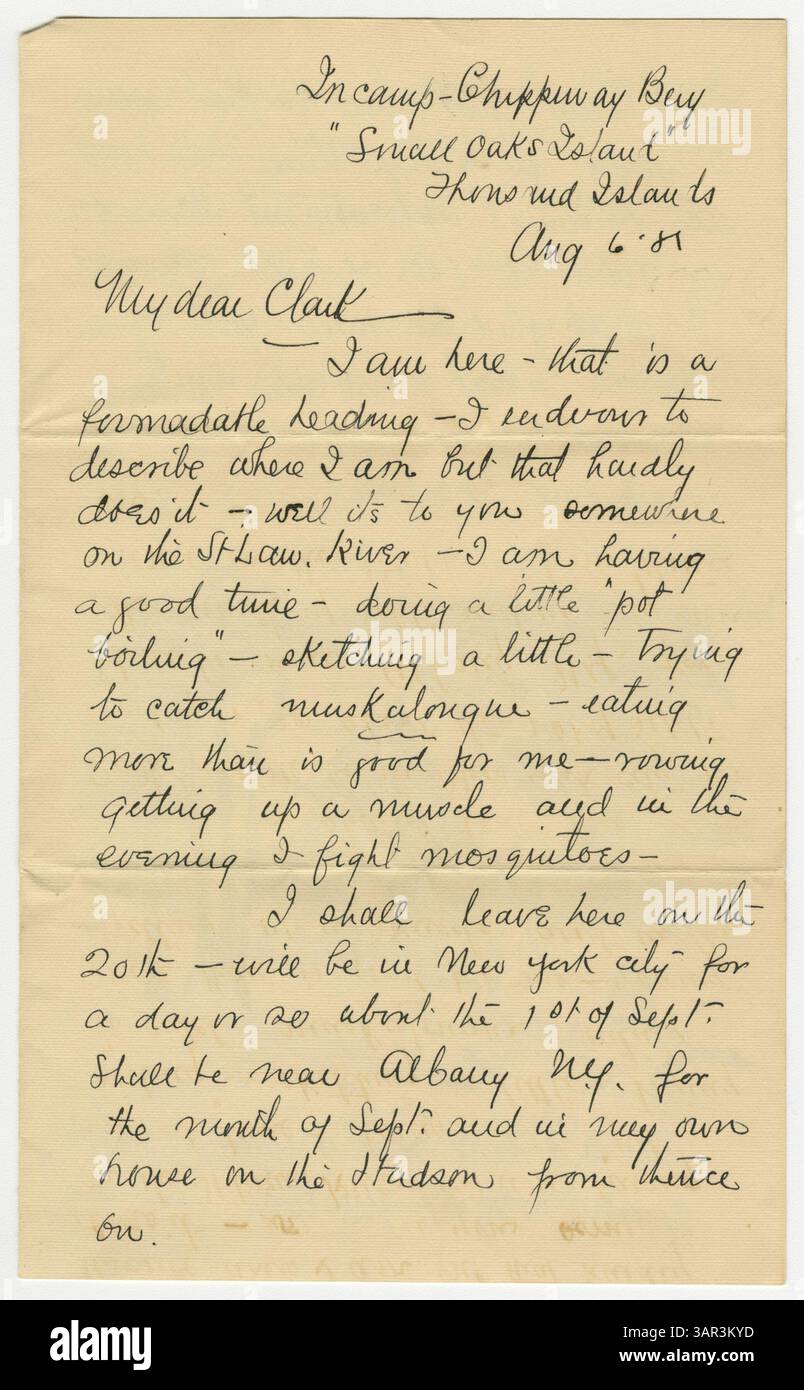 In camp - Chippeway Bay
"Small Oaks Island"
Thousand Islands
Aug 6 '8
My dear Clark
I am here - that is a
formadable heading - I endevour to
describe where I am but that hardly
does it - well it's to you somewhere
on the St Law. River - I am having
a good time - doing a little "pot
boiling" - sketching a little - trying
to catch muskalongue - eating
more than is good for me - rowing
getting up a muscle and in the
evening I fight mosquitoes -
I shall leave here on the
20th - will be in New York city for
a day or so about the 1st of Sept.
Shall be near Albany N.Y. for
the month of Sept. and in my own
house on the Hudson from thence
on.
alamy
Image ID: 3AR3KYD
www.alamy.com